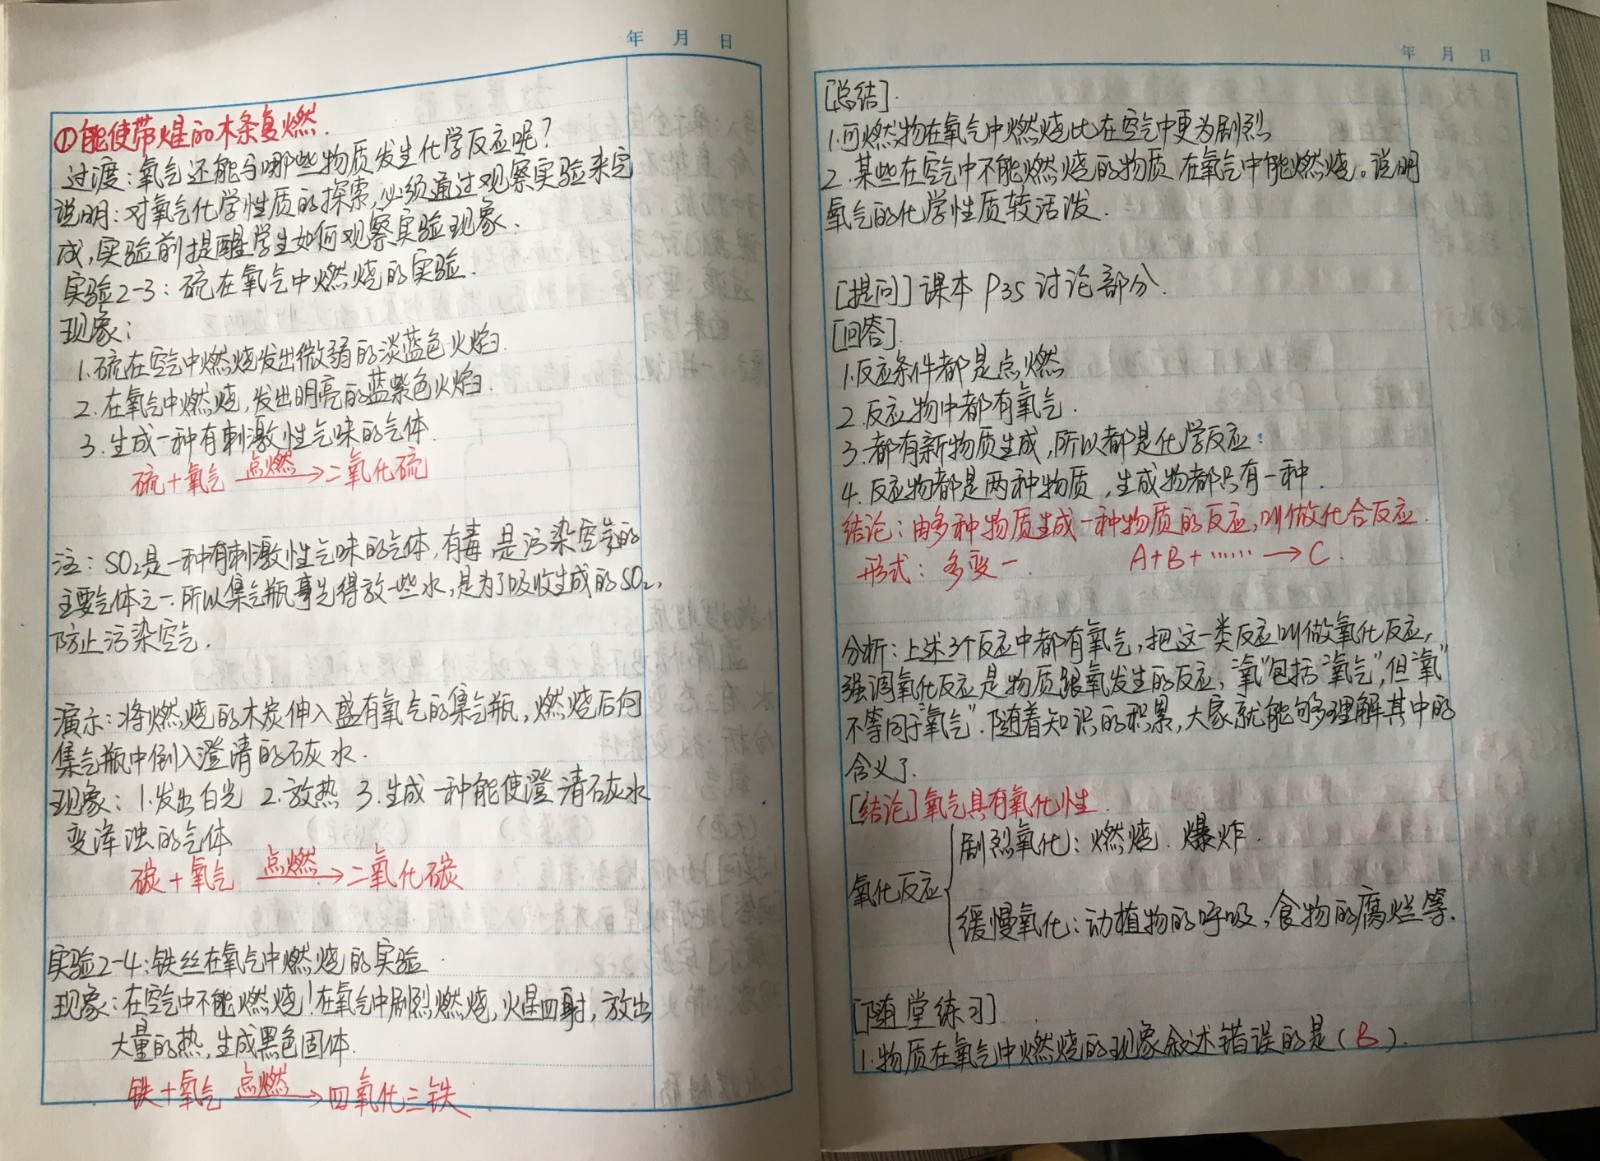 年 月 日
①能使带火星的木条复燃.
过渡:氧气还能与哪些物质发生化学反应呢?
说明:对氧气化学性质的探索,必须通过观察实验来完
成,实验前提醒学生如何观察实验现象.
实验2-3:硫在氧气中燃烧的实验.
现象:
1.硫在空气中燃烧发出微弱的淡蓝色火焰.
2.在氧气中燃烧,发出明亮的蓝紫色火焰.
3.生成一种有刺激性气味的气体.
硫+氧气 点燃→ 二氧化硫
注:SO₂是一种有刺激性气味的气体,有毒,是污染空气的
主要气体之一.所以集气瓶事先得放一些水,是为了吸收生成的SO₂,
防止污染空气.
演示:将燃烧的木炭伸入盛有氧气的集气瓶,燃烧后向
集气瓶中倒入澄清的石灰水.
现象:1.发出白光 2.放热 3.生成一种能使澄清石灰水
变浑浊的气体
碳+氧气 点燃→ 二氧化碳
实验2-4:铁丝在氧气中燃烧的实验.
现象:在空气中不能燃烧!在氧气中剧烈燃烧,火星四射,放出
大量的热,生成黑色固体.
铁+氧气 点燃→ 四氧化三铁
年 月 日
[总结].
1.可燃物在氧气中燃烧比在空气中更为剧烈
2.某些在空气中不能燃烧的物质在氧气中能燃烧。说明
氧气的化学性质较活泼.
[提问]课本P35讨论部分.
[回答].
1.反应条件都是点燃
2.反应物中都有氧气.
3.都有新物质生成,所以都是化学反应:
4.反应物都是两种物质,生成物都只有一种.
结论:由多种物质生成一种物质的反应,叫做化合反应.
形式:多变一. A+B+……→C.
分析:上述3个反应中都有氧气,把这一类反应叫做氧化反应,
强调氧化反应是物质跟氧发生的反应,"氧"包括"氧气",但"氧"
不等同于"氧气".随着知识的积累,大家就能够理解其中的
含义了.
[结论]氧气具有氧化性.
剧烈氧化:燃烧.爆炸.
氧化反应
缓慢氧化:动植物的呼吸,食物的腐烂等.
[随堂练习]
1.物质在氧气中燃烧的现象叙述错误的是(B).